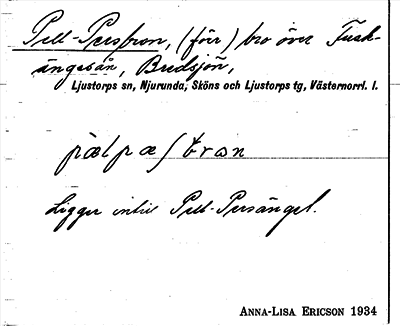 Pell-Persbron, (förr) bro över Tusk-
ängesån, Bredsjön,
Ljustorps sn, Njurunda, Sköns och Ljustorps tg, Västernorrl. l.
pælpæʃbron
Ligger intill Pell-Persänget.
ANNA-LISA ERICSON 1934